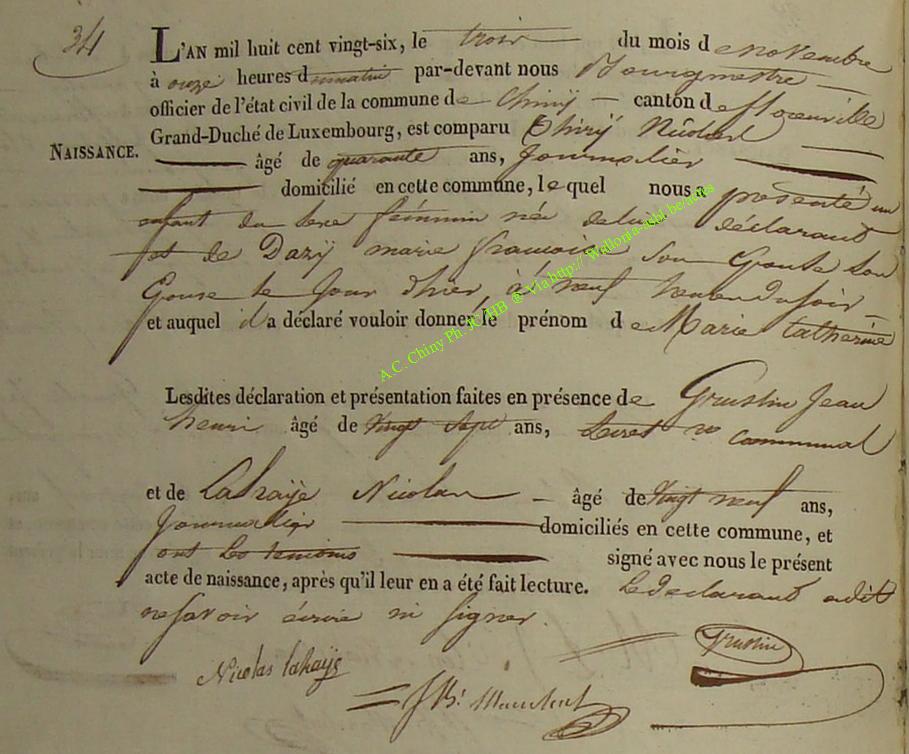 34
L'AN mil huit cent vingt-six, le trois du mois de novembre
à onze heures du matin par-devant nous Bourgmestre
officier de l'état civil de la commune de Chinÿ canton de florenville
Grand-Duché de Luxembourg, est comparu Thirÿ Nicolas
NAISSANCE.
âgé de quarante ans, Journalier
domicilié en cette commune, lequel nous a présenté un
enfant du sexe féminin née de lui déclarant
et de Dazÿ marie francoise son Epouse son
Epouse le Jour d'hier, à neuf heures du soir
et auquel il a déclaré vouloir donner le prénom de Marie Catherine
A.C. Chiny Ph. JC HB @ Via http:// Wallonia-asbl.be/actes
Lesdites déclaration et présentation faites en présence de Grustin Jean
henri âgé de vingt sept ans, Secret re communal
et de Lahaÿe Nicolas âgé de vingt neuf ans,
Journalier domiciliés en cette commune, et
ont les temoins signé avec nous le présent
acte de naissance, après qu'il leur en a été fait lecture. Le Declarant a dit
ne savoir écrire ni signer.
Grustin
Nicolas lahaÿe